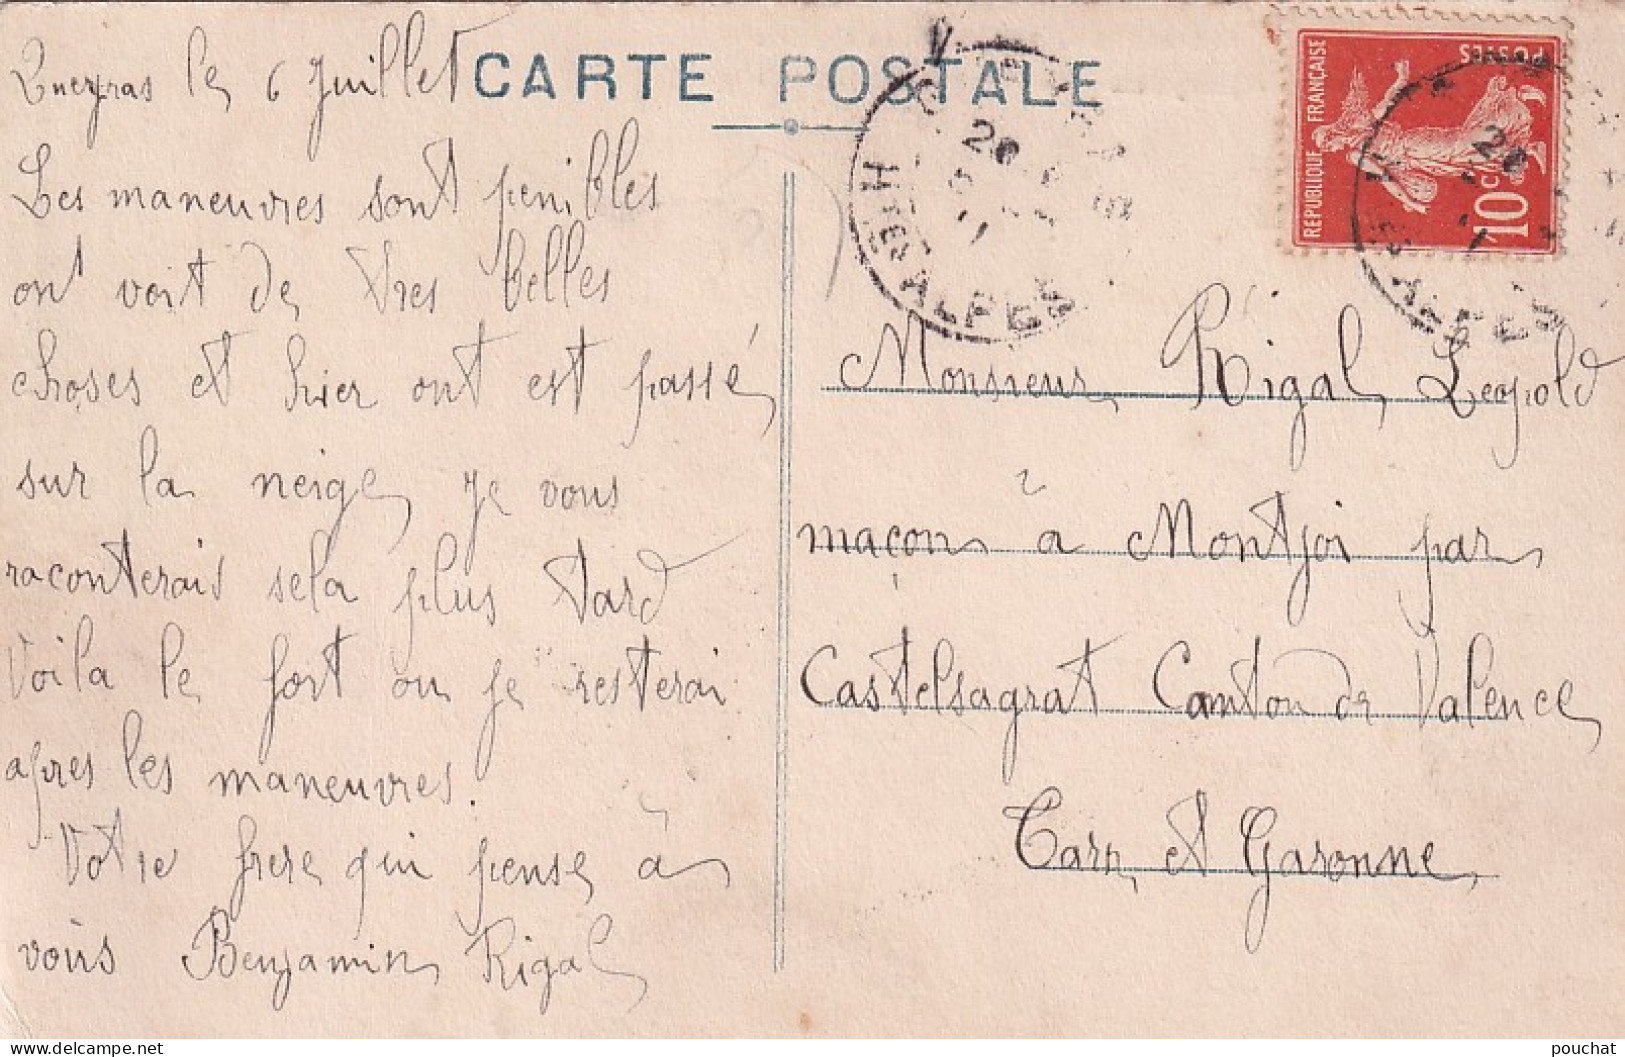 CARTE POSTALE
Queyras le 6 Juillet
Les maneuvres sont penibles
ont voit de tres belles
choses et hier ont est passé
sur la neige je vous
raconterais sela plus tard
Voila le fort ou je resterai
apres les maneuvres.
Votre frere qui pense à
vous Benjamin Rigal
REPUBLIQUE FRANÇAISE
POSTES
10 c
Htes ALPES
Monsieur Rigal Leopold
maçon à Montjoi par
Castelsagrat Canton de Valence
Tarn et Garonne
pouchat